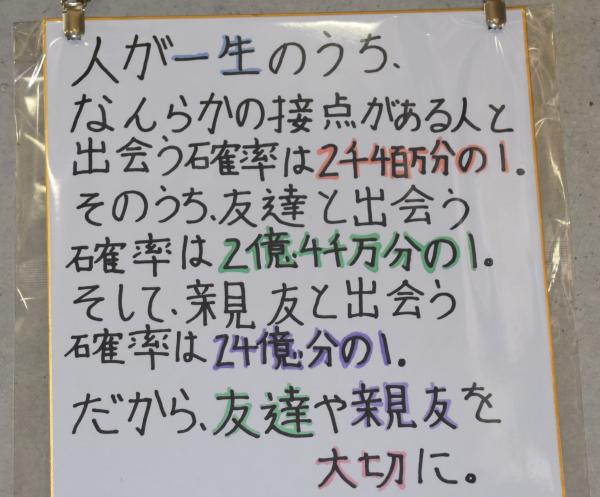 人が一生のうち、
なんらかの接点がある人と
出会う確率は2千4百万分の1。
そのうち、友達と出会う
確率は2億4千万分の1。
そして、親友と出会う
確率は24億分の1.
だから、友達や親友を
大切に。